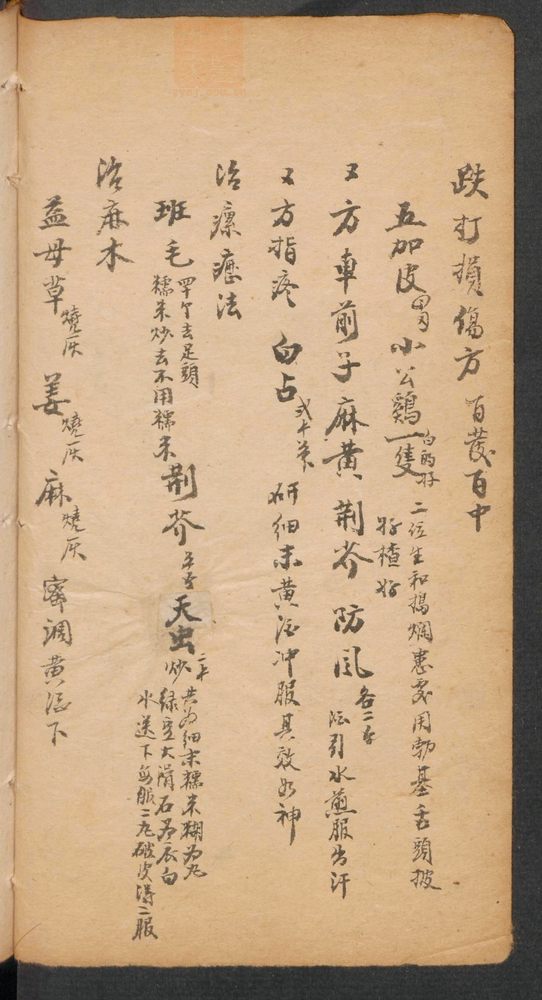 跌打損傷方　百發百中
五加皮　小公鷄一隻　白的好　二位生和搗爛患處用勃基舌頭披
好楂好
又方　車前子　麻黃　荆芥　防風　各二　酒引水煎服出汗
又方指疼　白占　研細末黃酒冲服其效如神
治瘰癧法
班毛　四个去足頭
糯米炒去不用糯米　荆芥　天虫　炒　共為細末糯米糊為丸
菉豆大滑石為衣白
水送下每服一丸破皮得二服
治麻木
益母草燒灰　姜燒灰　麻燒灰　蜜調黃酒下